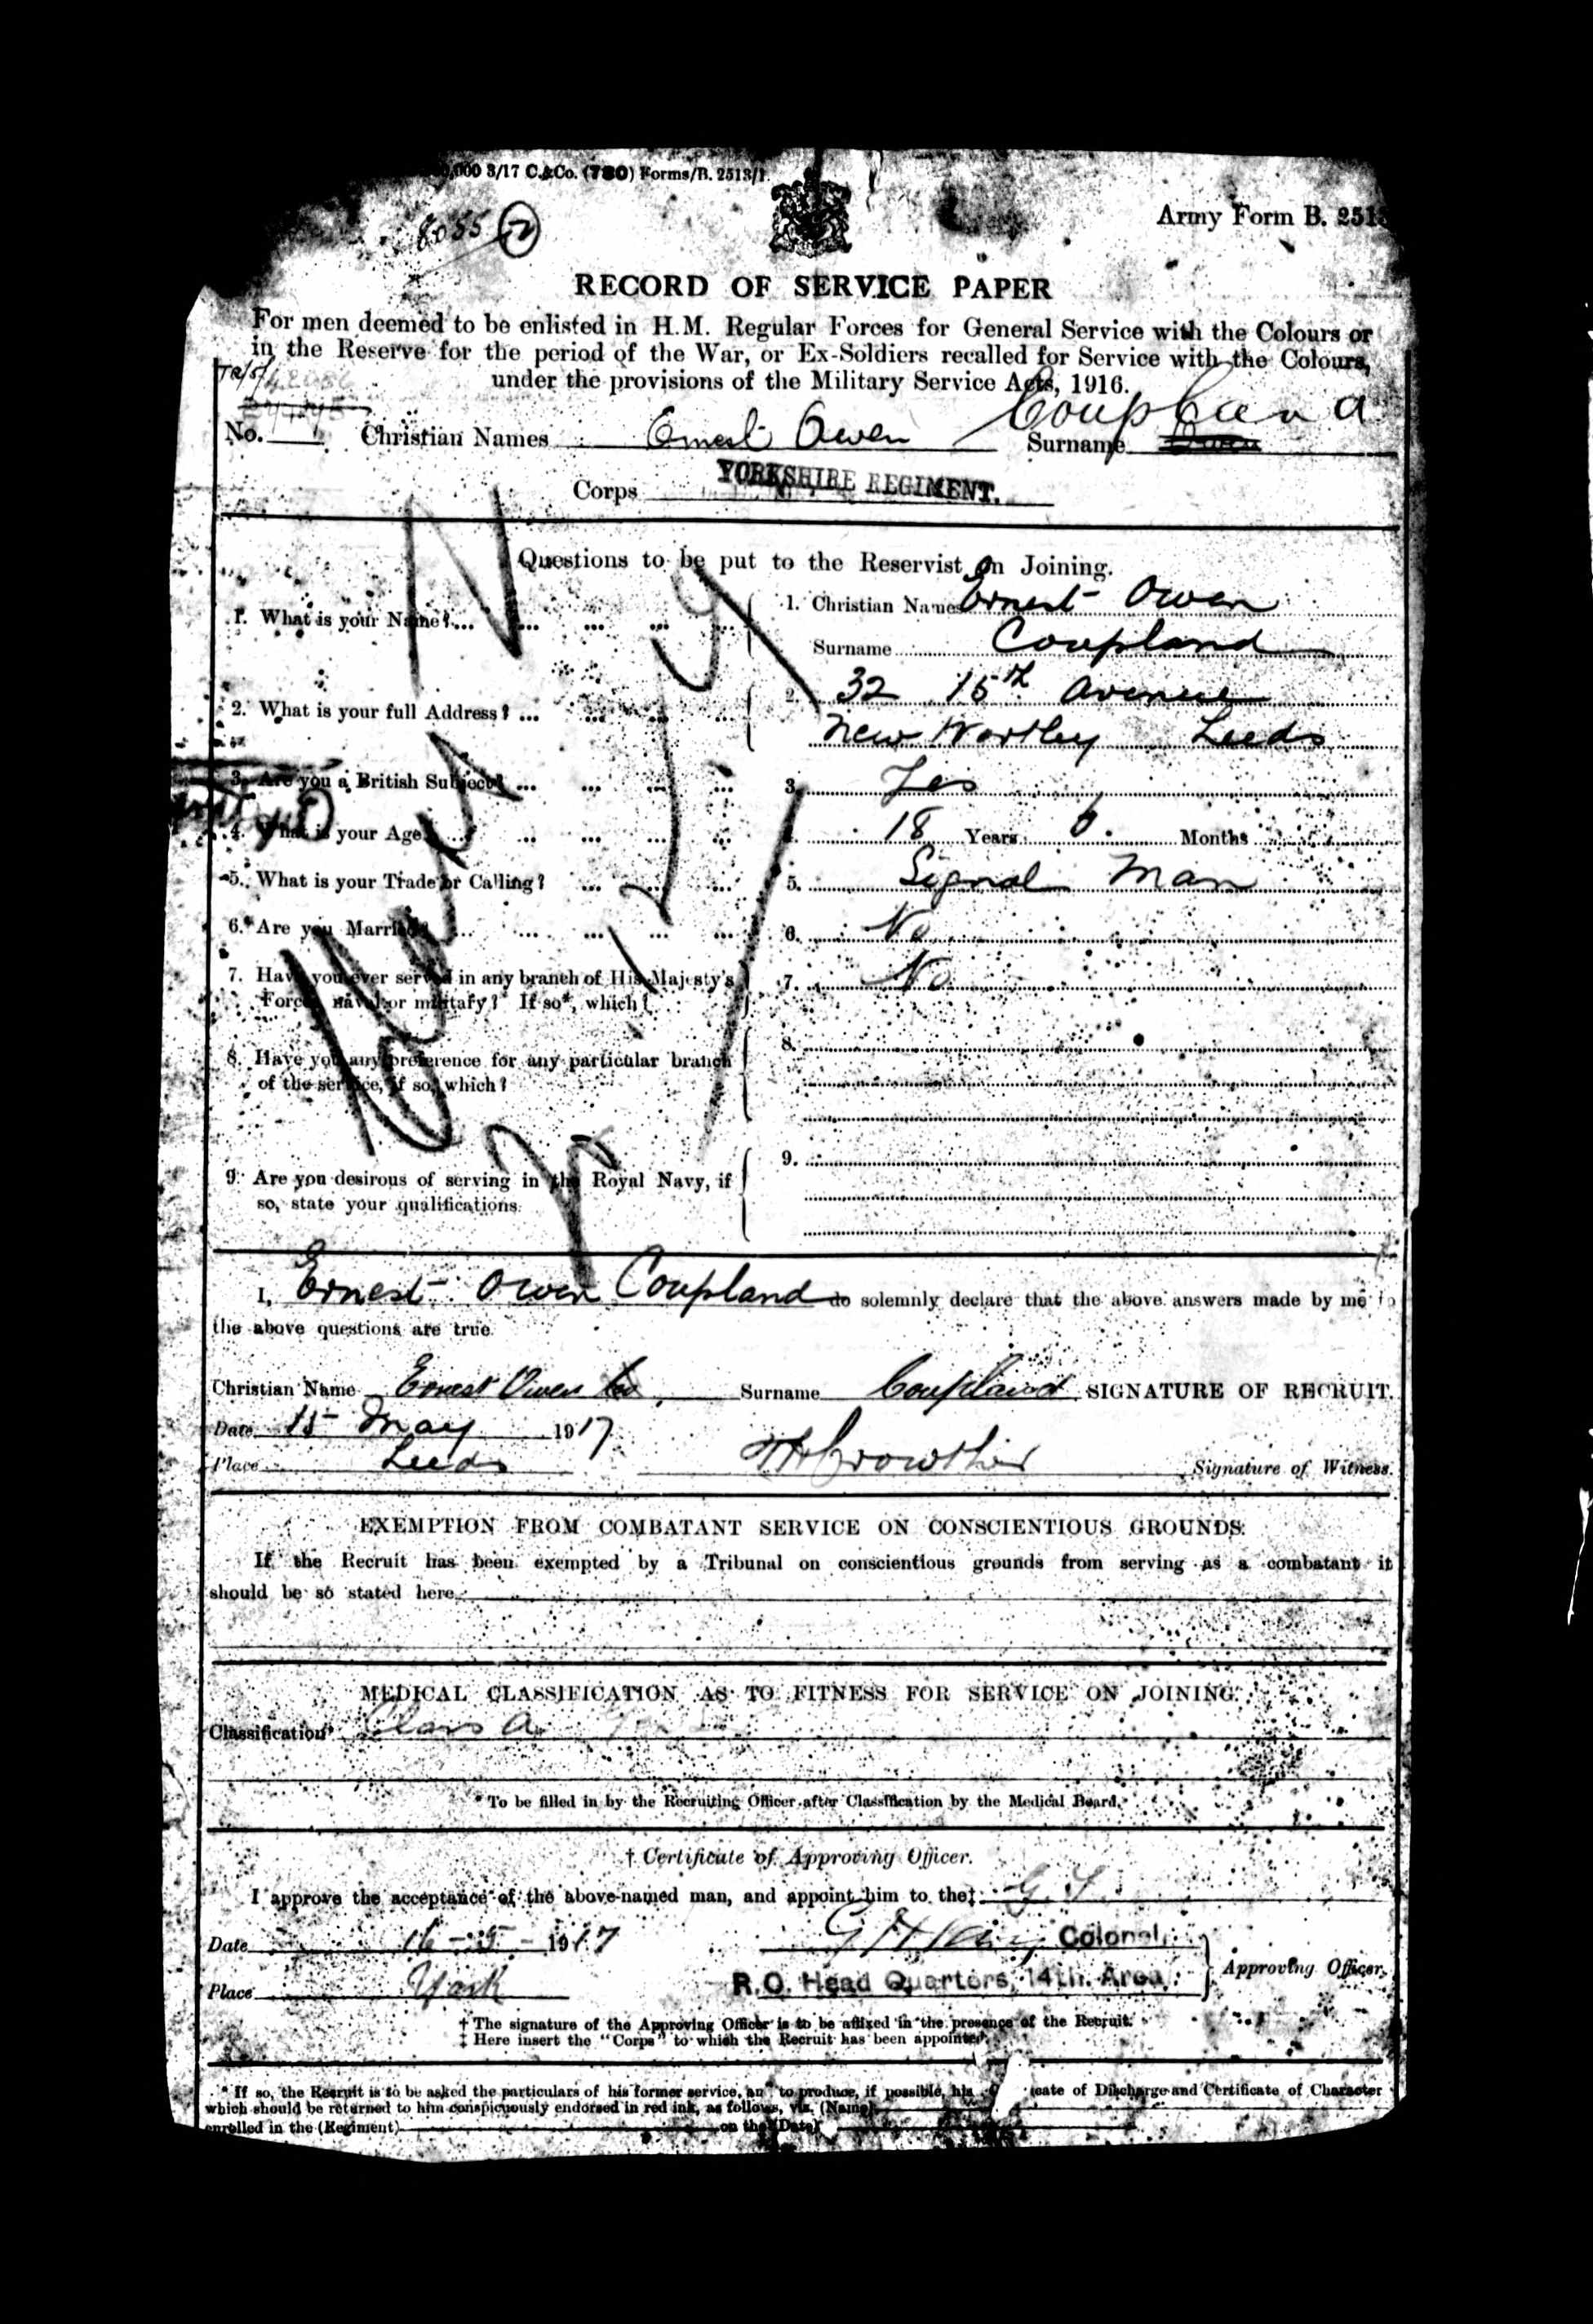 ,000 3/17 C.&Co. (780) Forms/B. 2513/1.
8055 2
Army Form B. 251
RECORD OF SERVICE PAPER
For men deemed to be enlisted in H.M. Regular Forces for General Service with the Colours or
in the Reserve for the period of the War, or Ex-Soldiers recalled for Service with the Colours,
under the provisions of the Military Service Acts, 1916.
TR/5/
No. Christian Names Ernest Owen Surname Coupland
Corps YORKSHIRE REGIMENT.
Questions to be put to the Reservist on Joining.
1. What is your Name?... ... ... ... ... 1. Christian Names Ernest Owen
Surname Coupland
2. What is your full Address? ... ... ... ... 2. 32 15th Avenue
New Wortley Leeds
3. Are you a British Subject? ... ... ... ... 3. Yes
4. What is your Age ... ... ... ... 4. 18 Years 0 Months
5. What is your Trade or Calling? ... ... ... 5. Signal Man
6. Are you Married? ... ... ... ... ... 6. No
7. Have you ever served in any branch of His Majesty's 7. No
Forces, naval or military? If so*, which?
8. Have you any preference for any particular branch 8.
of the service, if so, which?
9. Are you desirous of serving in the Royal Navy, if 9.
so, state your qualifications.
I, Ernest Owen Coupland do solemnly declare that the above answers made by me to
the above questions are true.
Christian Name Ernest Owen Surname Coupland SIGNATURE OF RECRUIT.
Date 15 May 1917
Place Leeds THCrowther Signature of Witness.
EXEMPTION FROM COMBATANT SERVICE ON CONSCIENTIOUS GROUNDS.
If the Recruit has been exempted by a Tribunal on conscientious grounds from serving as a combatant it
should be so stated here
MEDICAL CLASSIFICATION AS TO FITNESS FOR SERVICE ON JOINING.
Classification* Class A
* To be filled in by the Recruiting Officer after Classification by the Medical Board.
† Certificate of Approving Officer.
I approve the acceptance of the above-named man, and appoint him to the‡
Date 16-5-1917 Colonel,
R.O. Head Quarters, 14th. Area. Approving Officer.
Place York
† The signature of the Approving Officer is to be affixed in the presence of the Recruit.
‡ Here insert the "Corps" to which the Recruit has been appointed.
* If so, the Recruit is to be asked the particulars of his former service, an to produce, if possible, his icate of Discharge and Certificate of Character
which should be returned to him conspicuously endorsed in red ink, as follows, viz. (Name)
enrolled in the (Regiment) on the (Date)